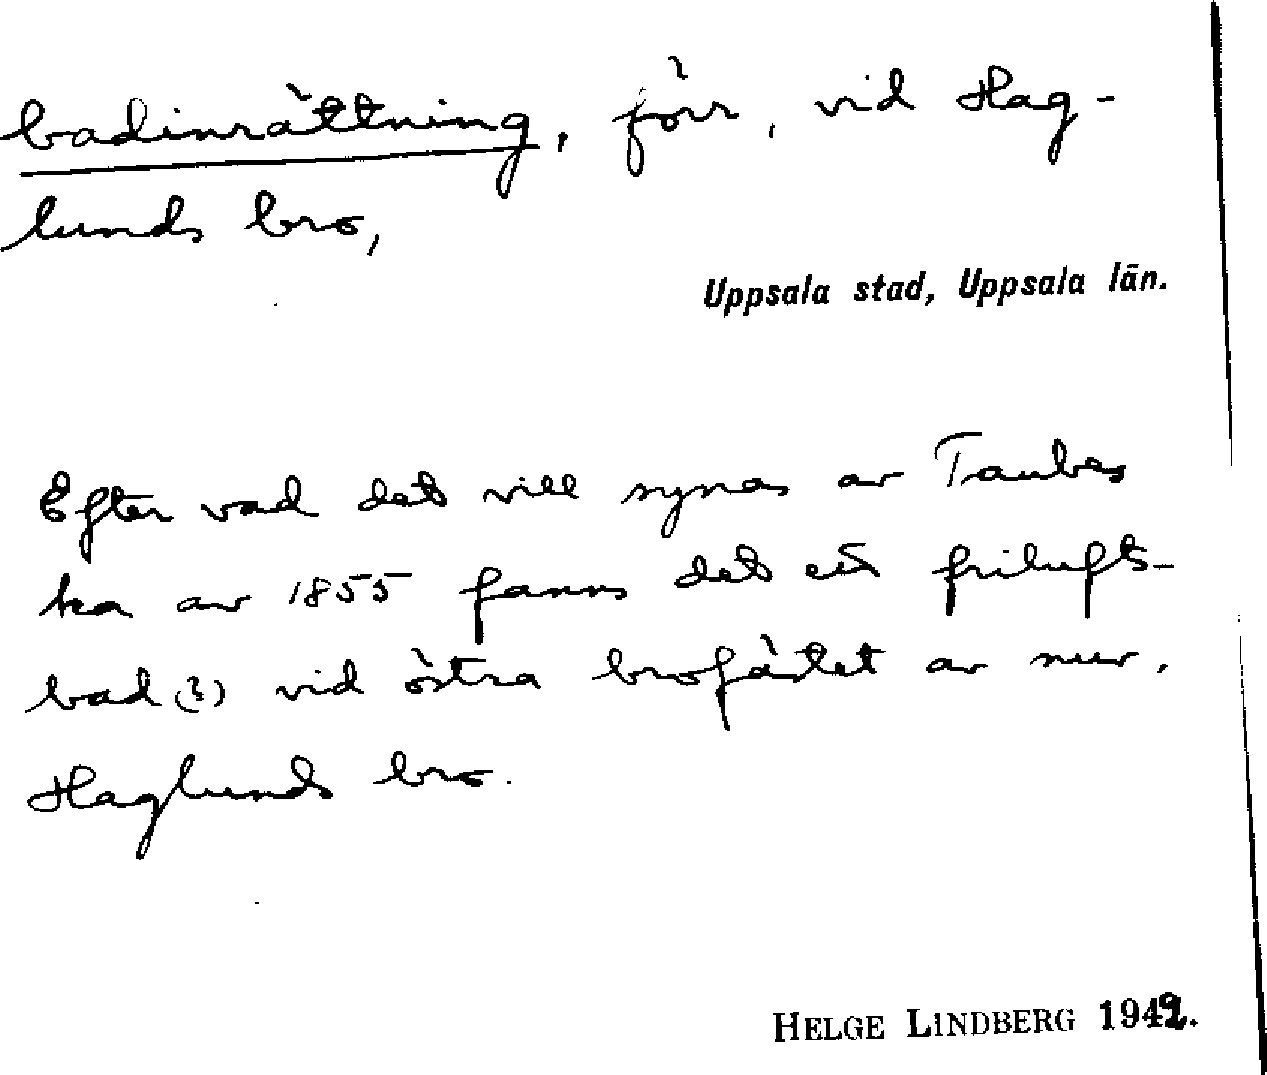 badinrättning, förr, vid Hag-
lunds bro,
Uppsala stad, Uppsala län.
Efter vad det vill synas av Taubes
ka av 1855 fanns det ett frilufts-
bad (?) vid östra brofästet av nuv.
Haglunds bro.
HELGE LINDBERG 1942.